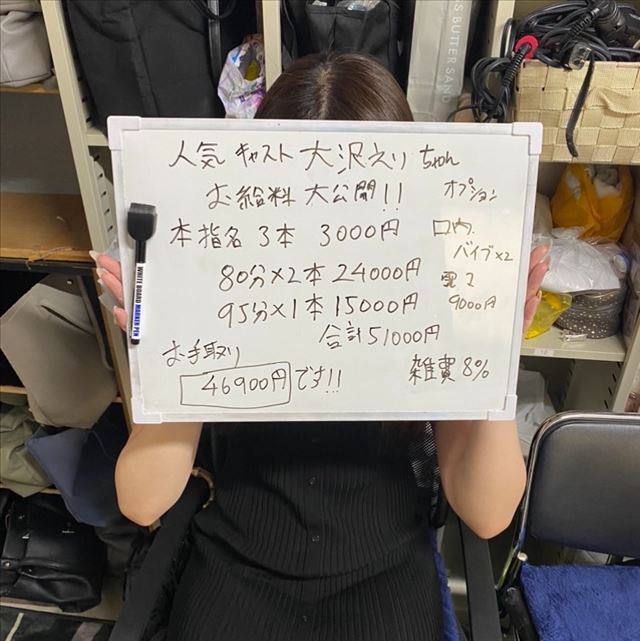 人気 キャスト 大沢えり ちゃん
お給料 大公開!!
オプション
本指名 3本 3000円
ロウ.
バイブ×2
80分×2本 24000円
電マ
9000円
95分×1本 15000円
合計51000円
お手取り
46900円です!!
雑費 8%
WHITE BOARD MARKER PEN
S BUTTER SAND